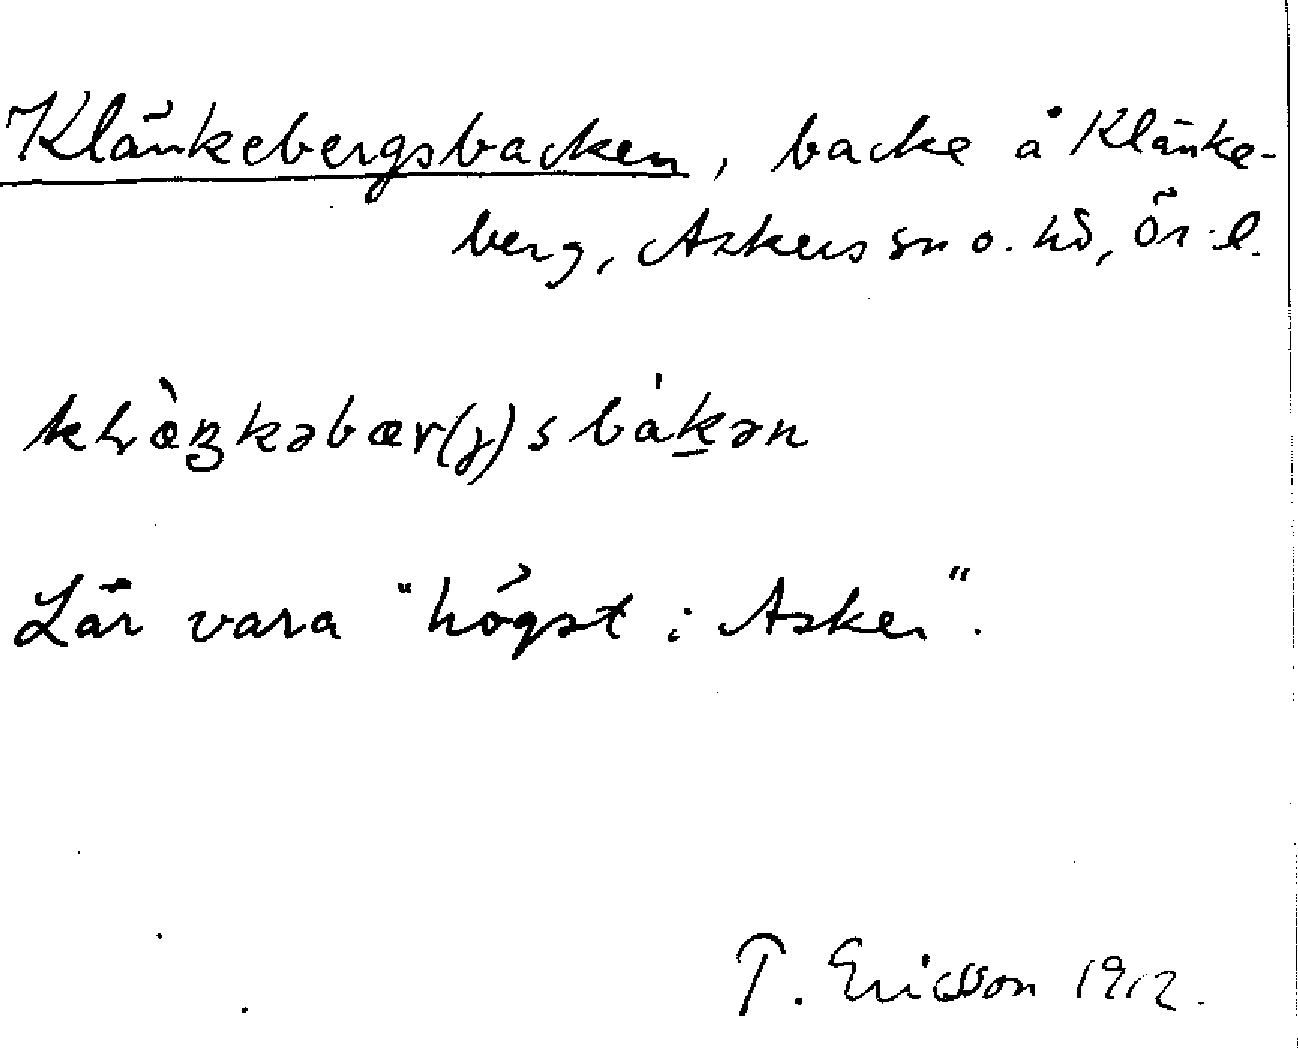 Klänkebergsbacken, backe å Klänke-
berg, Askers sn o. hd, Ör. l.
Lär vara "högst i Asker".
T. Ericsson 1912.